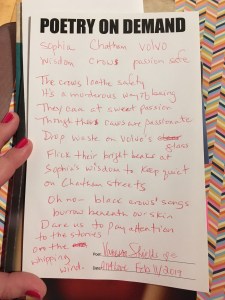 POETRY ON DEMAND
Sophia Chatham Volvo
Wisdom Crows passion safe
The crows loathe safety
It's a murderous way of being
They aim at sweet passion
Through their caws are passionate
Drop waste on Volvo's
glass
Flick their bright beaks at
Sophia's wisdom to keep quiet
on Chatham streets
Oh no - black crows' songs
burrow beneath our skin
Dare us to pay attention
to the stories
on the
whipping
wind.